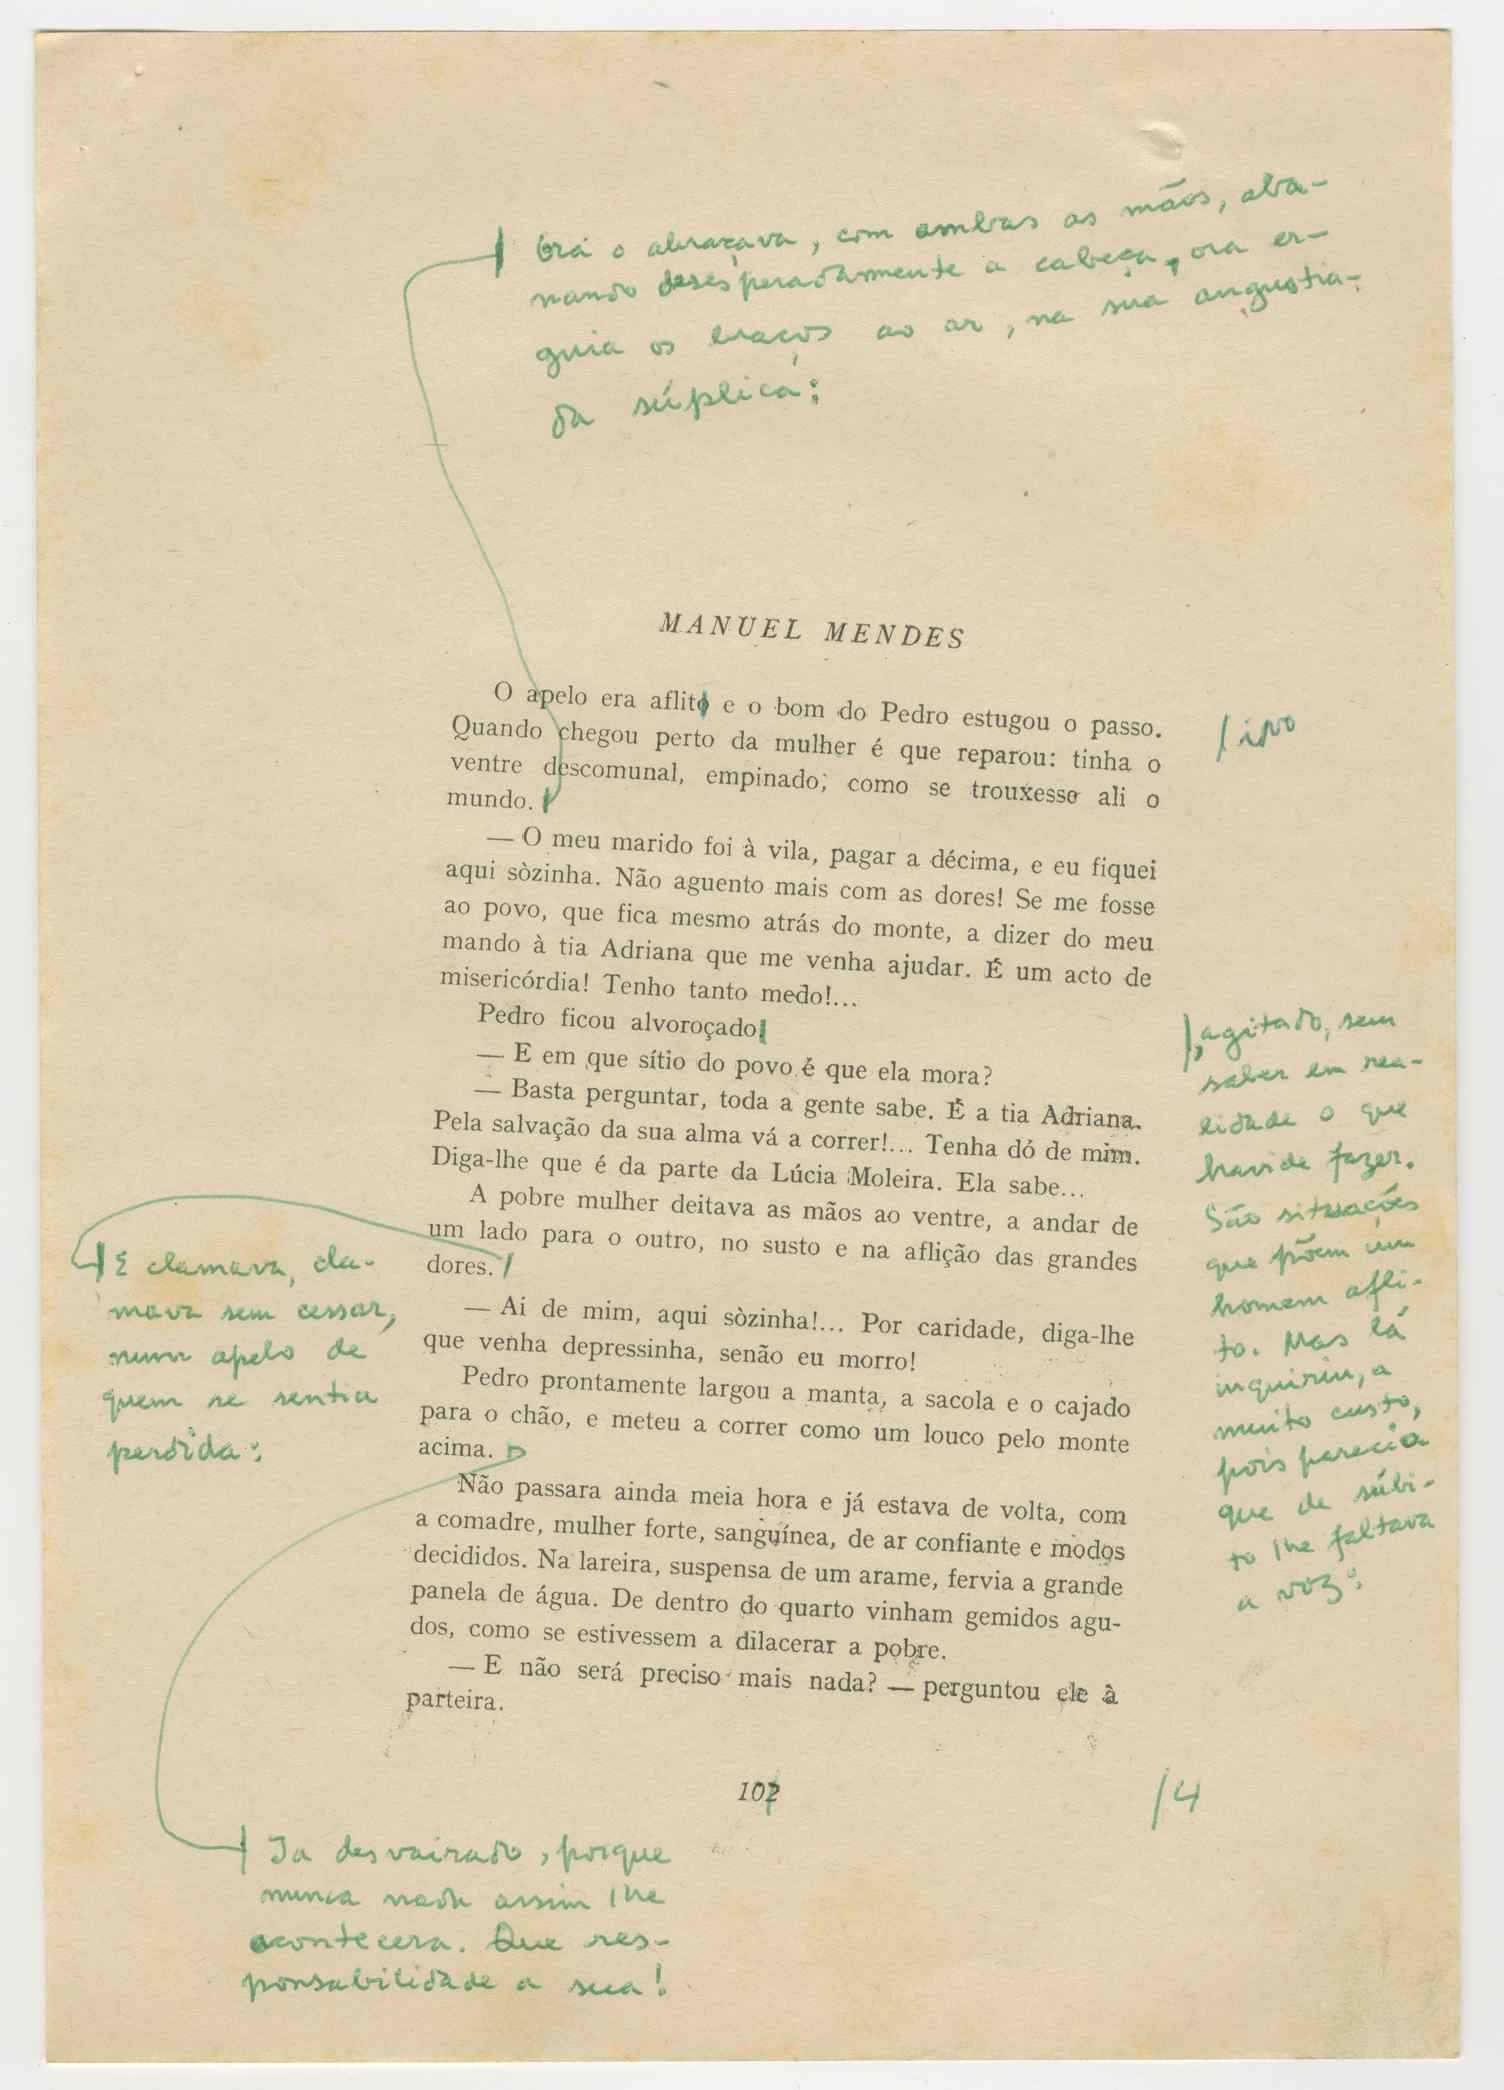 Ora o abraçava, com ambas as mãos, aba-
nando desesperadamente a cabeça, ora er-
guia os braços ao ar, na sua angustia-
da súplica:
MANUEL MENDES
O apelo era aflito e o bom do Pedro estugou o passo.
/ivo
Quando chegou perto da mulher é que reparou: tinha o
ventre descomunal, empinado, como se trouxesse ali o
mundo.
— O meu marido foi à vila, pagar a décima, e eu fiquei
aqui sòzinha. Não aguento mais com as dores! Se me fosse
ao povo, que fica mesmo atrás do monte, a dizer do meu
mando à tia Adriana que me venha ajudar. É um acto de
misericórdia! Tenho tanto medo!...
Pedro ficou alvoroçado
, agitado, sem
saber em rea-
lidade o que
havia de fazer.
São situações
que põem um
homem afli-
to. Mas lá
inquiriu, a
muito custo,
pois parecia
que de súbi-
to lhe faltava
a voz:
— E em que sítio do povo é que ela mora?
— Basta perguntar, toda a gente sabe. É a tia Adriana.
Pela salvação da sua alma vá a correr!... Tenha dó de mim.
Diga-lhe que é da parte da Lúcia Moleira. Ela sabe...
A pobre mulher deitava as mãos ao ventre, a andar de
um lado para o outro, no susto e na aflição das grandes
dores.
E clamava, cla-
mava sem cessar,
num apelo de
quem se sentia
perdida:
— Ai de mim, aqui sòzinha!... Por caridade, diga-lhe
que venha depressinha, senão eu morro!
Pedro prontamente largou a manta, a sacola e o cajado
para o chão, e meteu a correr como um louco pelo monte
acima.
Não passara ainda meia hora e já estava de volta, com
a comadre, mulher forte, sanguínea, de ar confiante e modos
decididos. Na lareira, suspensa de um arame, fervia a grande
panela de água. De dentro do quarto vinham gemidos agu-
dos, como se estivessem a dilacerar a pobre.
— E não será preciso mais nada? — perguntou ele à
parteira.
107
/4
Ia desvairado, porque
nunca nada assim lhe
acontecera. Que res-
ponsabilidade a sua!